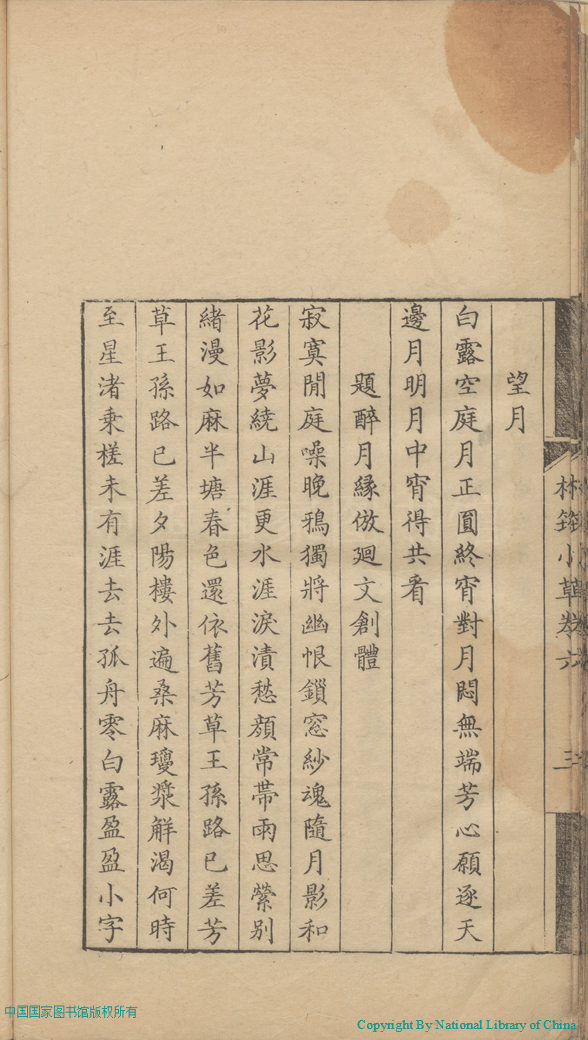 望月
白露空庭月正圓終宵對月悶無端芳心願逐天
邊月明月中宵得共看
題醉月緣倣廻文創體
寂寞閒庭噪晚鴉獨將幽恨鎖窓紗魂隨月影和
花影夢繞山涯更水涯淚漬愁顏常帶雨思縈別
緒漫如麻半塘春色還依舊芳草王孫路已差芳
草王孫路已差夕陽樓外遍桑麻瓊漿解渴何時
至星渚乗槎未有涯去去孤舟零白露盈盈小字
小草卷六
三
中国国家图书馆版权所有
Copyright By National Library of China